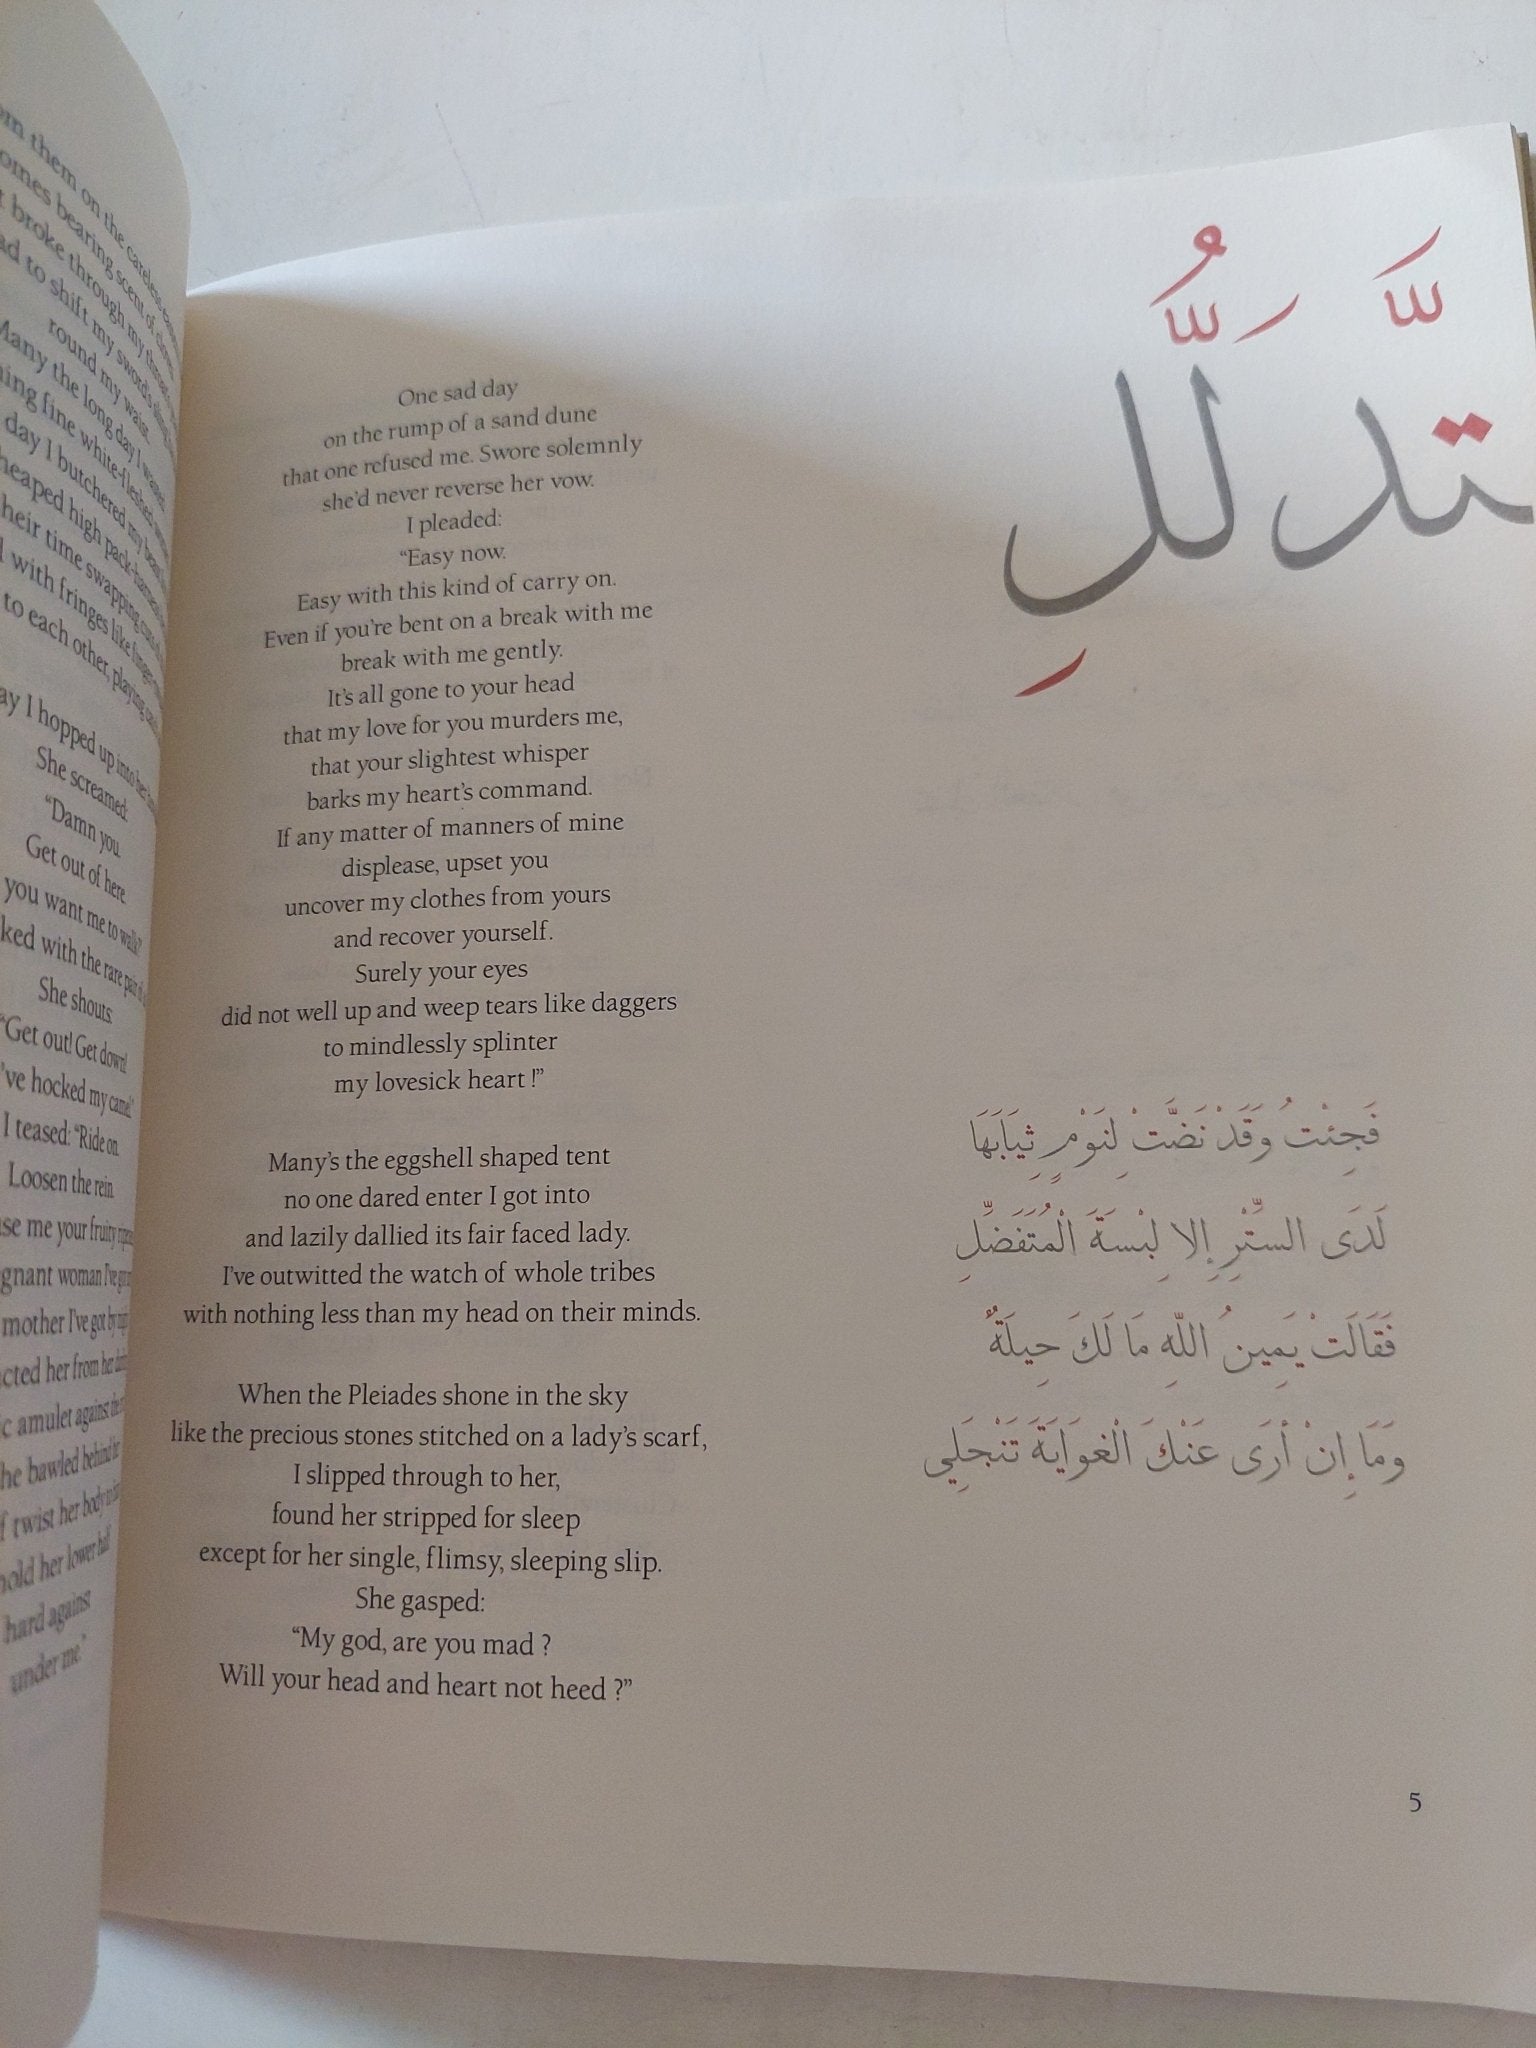 them on the careless
omes bearing scent of
broke through my throat
to shift my sword's
round my waist.
Many the long day I
fine white-fleshed
day I butchered my
heaped high
their time swapping
with fringes like
to each other, playing
I hopped up into her
She screamed:
“Damn you.
Get out of here.
you want me to walk?
with the rare
She shouts:
“Get out! Get down!
've hocked my camel
I teased: “Ride on.
Loosen the rein.
me your fruity
woman I've
mother I've got by
her from her
amulet against the
he bawled behind
twist her body
hold her lower half
hard against
under me.”
One sad day
on the rump of a sand dune
that one refused me. Swore solemnly
she'd never reverse her vow.
I pleaded:
“Easy now.
Easy with this kind of carry on.
Even if you're bent on a break with me
break with me gently.
It's all gone to your head
that my love for you murders me,
that your slightest whisper
barks my heart's command.
If any matter of manners of mine
displease, upset you
uncover my clothes from yours
and recover yourself.
Surely your eyes
did not well up and weep tears like daggers
to mindlessly splinter
my lovesick heart !”
Many's the eggshell shaped tent
no one dared enter I got into
and lazily dallied its fair faced lady.
I've outwitted the watch of whole tribes
with nothing less than my head on their minds.
When the Pleiades shone in the sky
like the precious stones stitched on a lady's scarf,
I slipped through to her,
found her stripped for sleep
except for her single, flimsy, sleeping slip.
She gasped:
“My god, are you mad ?
Will your head and heart not heed ?”
تَّدَلُّلِ
فَجِئْتُ وَقَدْ نَضَّتْ لِنَوْمٍ ثِيَابَهَا
لَدَى السِّتْرِ إِلا لِبْسَةَ الْمُتَفَضِّلِ
فَقَالَتْ يَمِينُ اللّهِ مَا لَكَ حِيلَةٌ
وَمَا إِنْ أَرَى عَنْكَ الْغوَايَةَ تَنْجَلِي
5